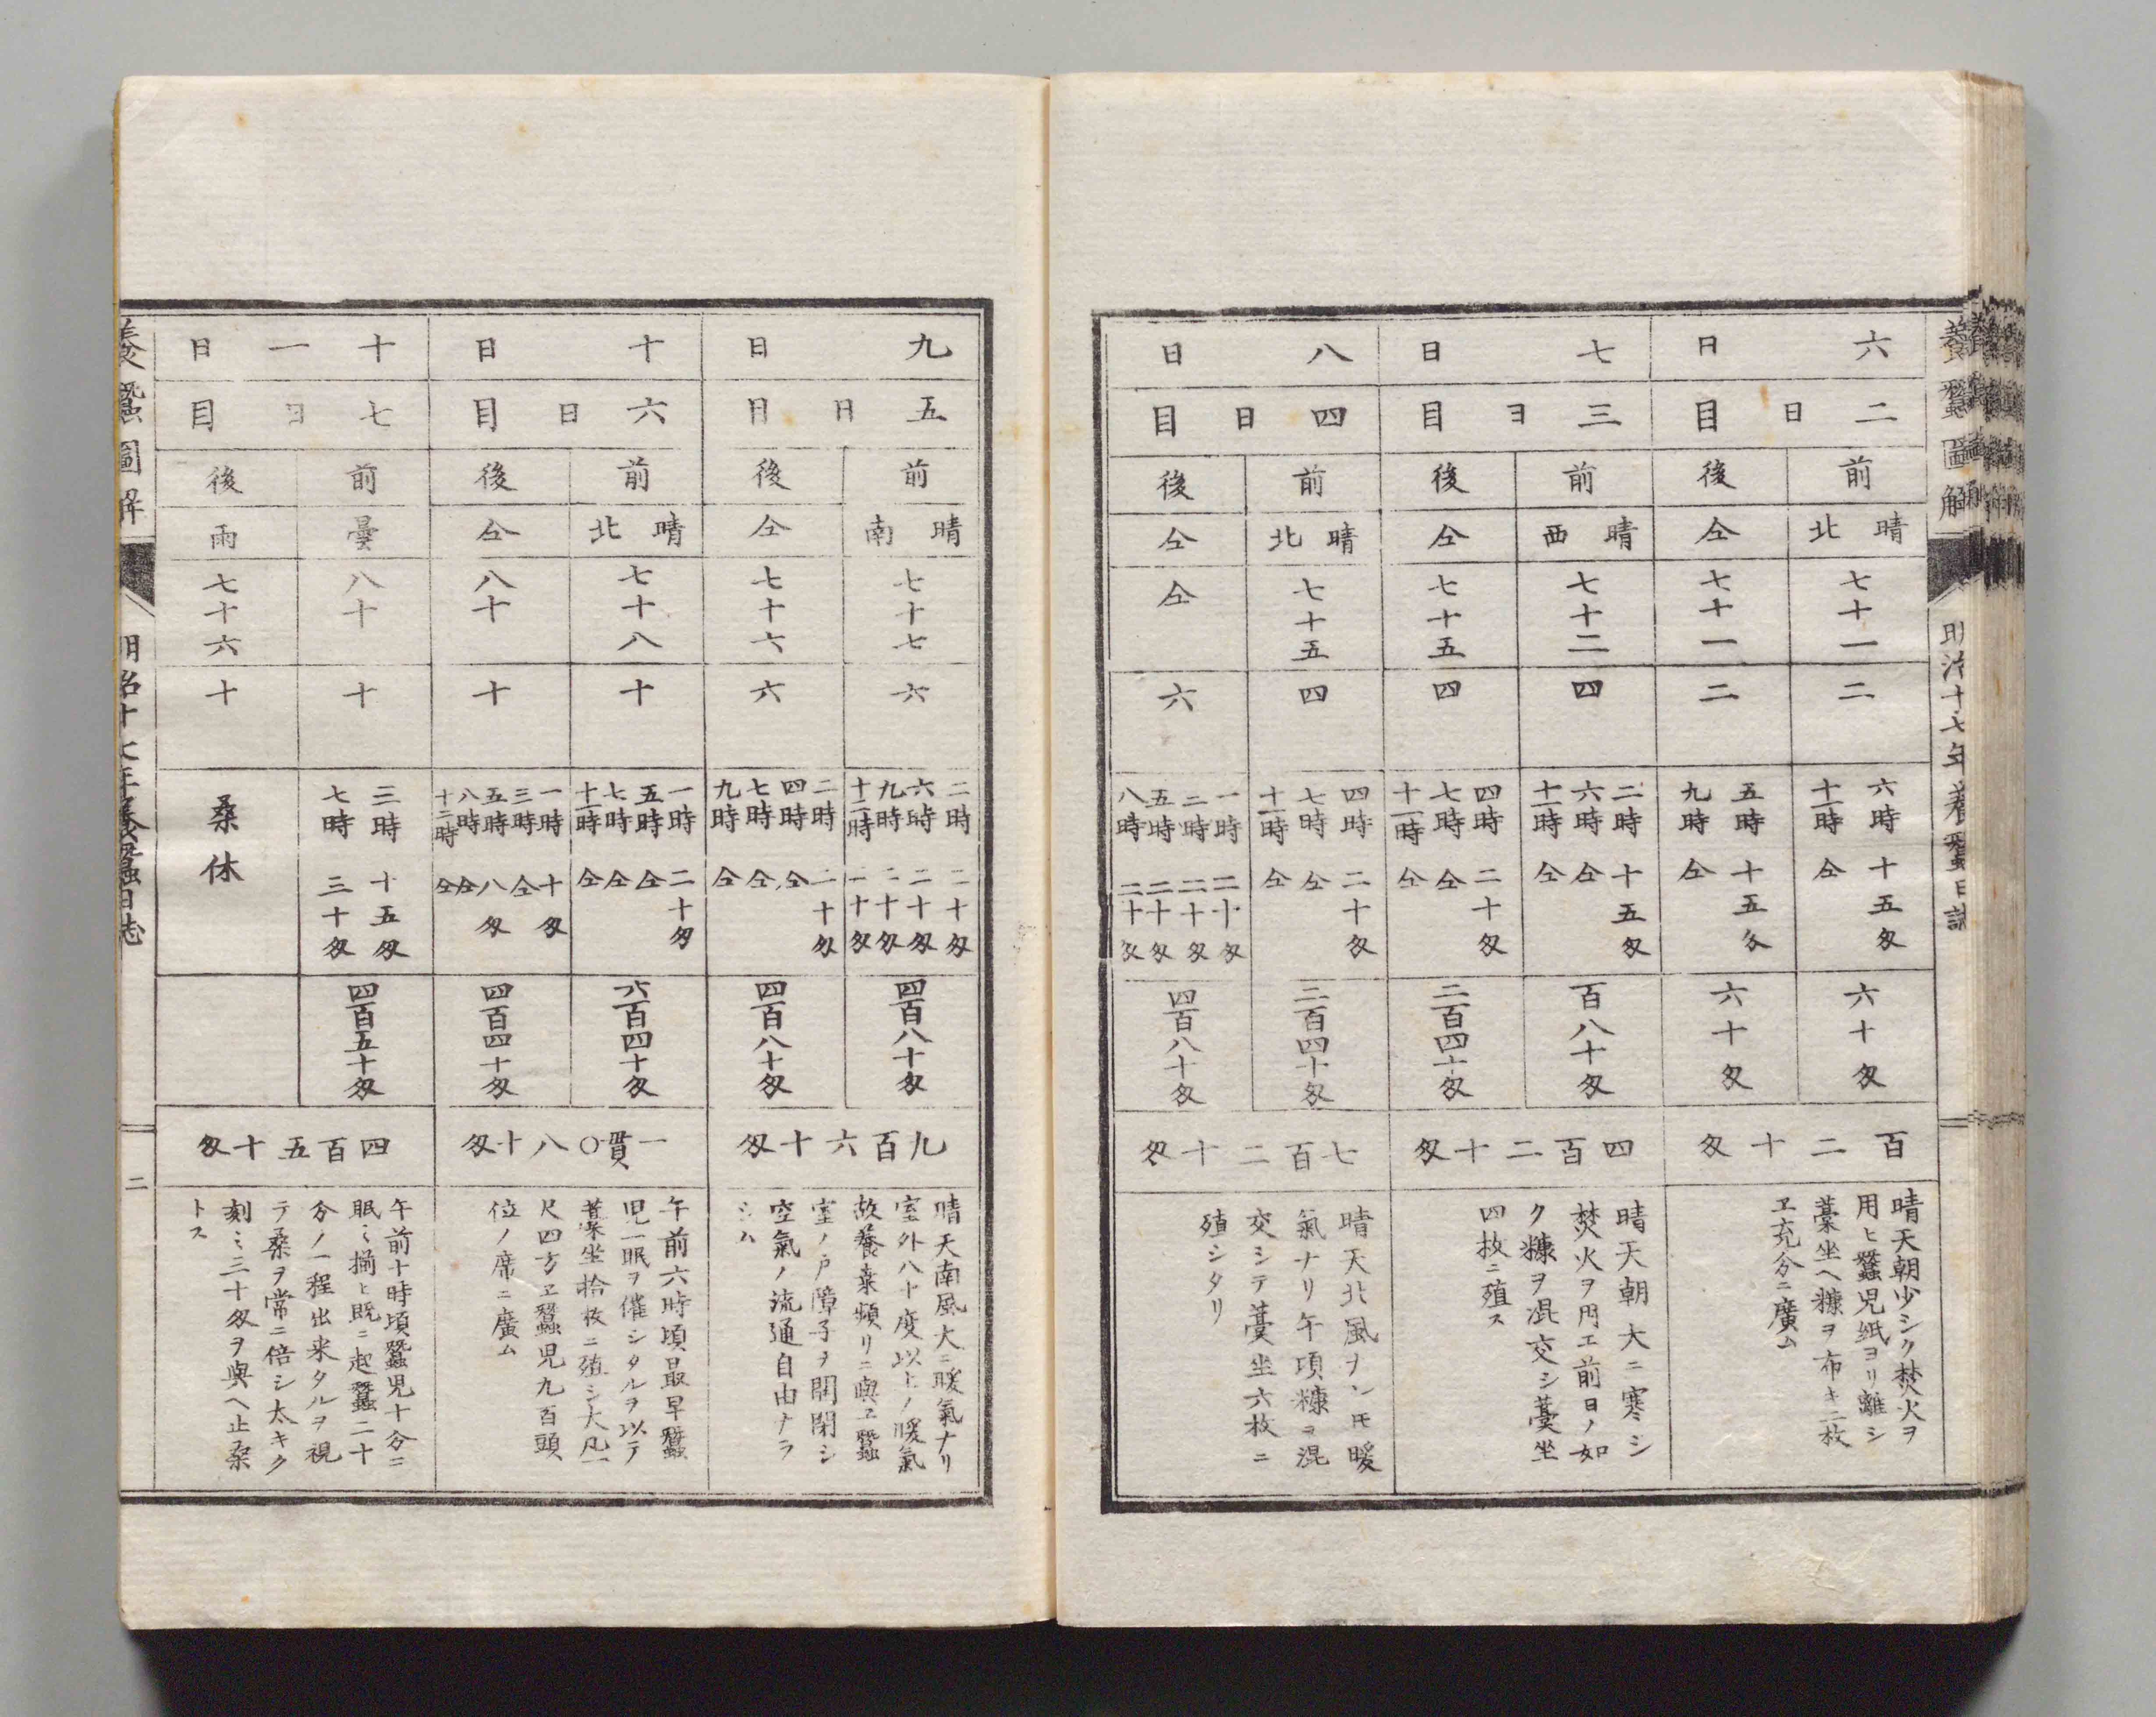 養蠶圖解
明治十七年養蠶日誌
六日
二日目
前
晴北
七十一
二
六時 十五匁
十一時 仝
六十匁
後
仝
七十一
二
五時 十五匁
九時 仝
六十匁
百二十匁
晴天朝少シク焚火ヲ
用ヒ蠶児紙ヨリ離シ
藁坐ヘ糠ヲ布キ二枚
エ充分ニ廣ム
七日
三日目
前
晴西
七十二
四
二時 十五匁
六時 仝
十一時 仝
百八十匁
後
仝
七十五
四
四時 二十匁
七時 仝
十一時 仝
二百四十匁
四百二十匁
晴天朝大ニ寒シ
焚火ヲ用エ前日ノ如
ク糠ヲ混交シ藁坐
四枚ニ殖ス
八日
四日目
前
晴北
七十五
四
四時 二十匁
七時 仝
十一時 仝
二百四十匁
後
仝
仝
六
一時 二十匁
二時 二十匁
五時 二十匁
八時 二十匁
四百八十匁
七百二十匁
晴天北風ナレ𪜈暖
氣ナリ午項糠ヲ混
交シテ藁坐六枚ニ
殖シタリ
九日
五日目
前
晴南
七十七
六
二時 二十匁
六時 二十匁
九時 二十匁
十二時 二十匁
四百八十匁
後
仝
七十六
六
二時 二十匁
四時 仝
七時 仝
九時 仝
四百八十匁
九百六十匁
晴天南風大ニ暖氣ナリ
室外八十度以上ノ暖氣
故養桒頻リニ與エ蠶
室ノ戸障子ヲ開閉シ
空氣ノ流通自由ナラ
シム
十日
六日目
前
晴北
七十八
十
一時 二十匁
五時 仝
七時 仝
十一時 仝
六百四十匁
後
仝
八十
十
一時 十匁
三時 仝
五時 八匁
八時 仝
十二時 仝
四百四十匁
一貫〇八十匁
午前六時頃最早蠶
児一眠ヲ催シタルヲ以テ
藁坐拾枚ニ殖シ大凡一
尺四方エ蠶児九百頭
位ノ席ニ廣ム
十一日
七日目
前
曇
八十
十
三時 十五匁
七時 三十匁
四百五十匁
後
雨
七十六
十
桑休
四百五十匁
午前十時頃蠶児十分ニ
眠ミ揃ヒ既ニ起蠶二十
分ノ一程出来タルヲ視
テ桑ヲ常ニ倍シ太キク
刻ミ三十匁ヲ與ヘ止桒
トス
養蠶圖解
明治十七年養蠶日誌
二